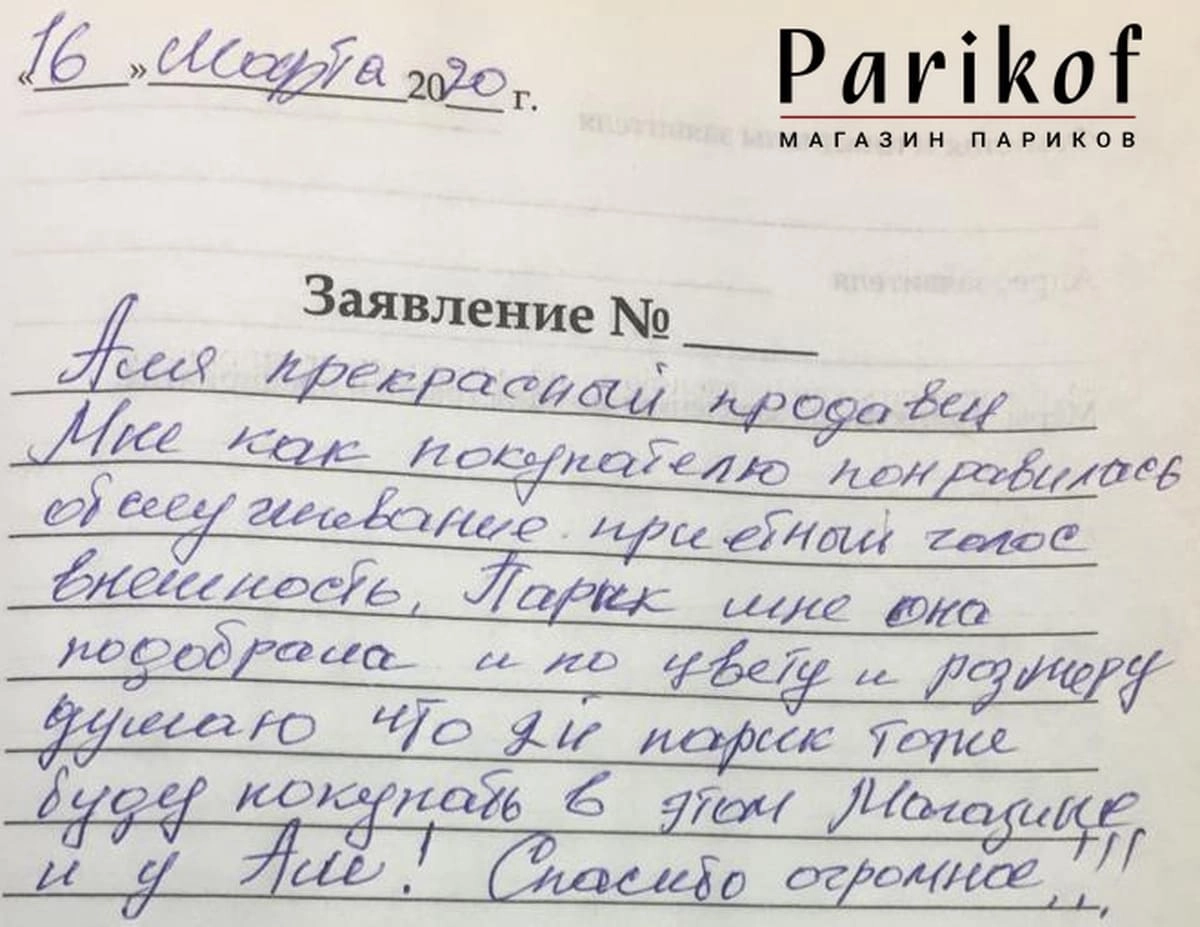 «16» Марта 2020 г.
Parikof
МАГАЗИН ПАРИКОВ
Заявление № ____
Аля прекрасный продавец
Мне как покупателю понравилась
обслуживание. приетный голос
внешность. Парик мне она
подобрала и по цвету и розмеру
думаю что 2й парик тоже
буду покупать в этом Магазине
и у Али! Спасибо огромное...!!!